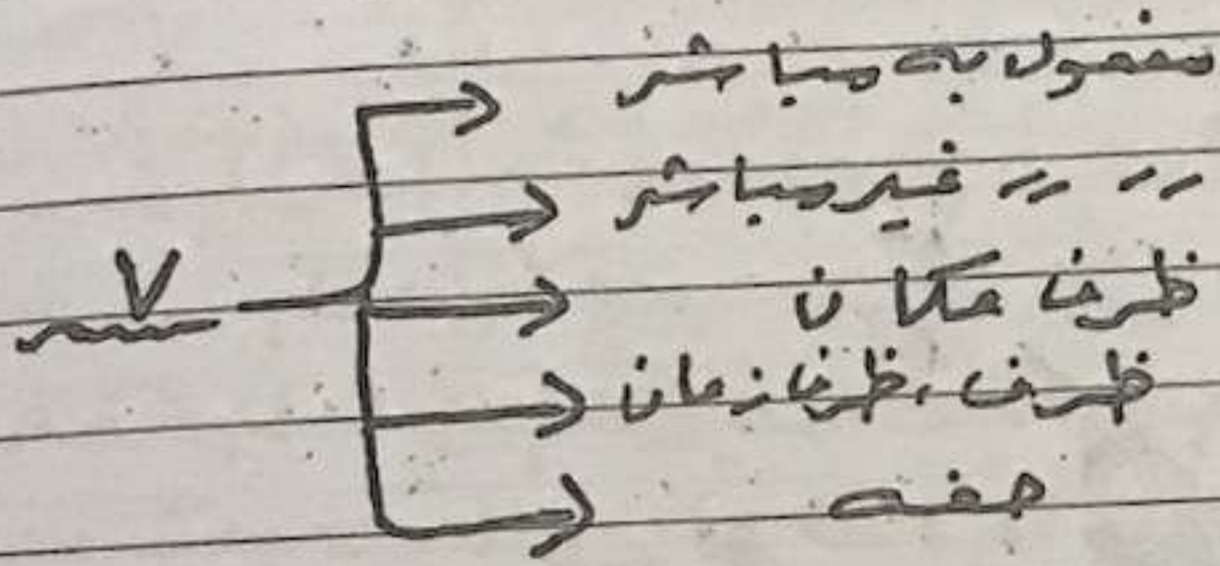 مفعول به مباشر
〃 〃 غير مباشر
V
ظرف مكان
ظرف، ظرف زمان
صفه